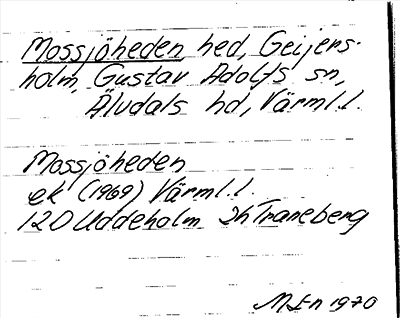 Mossjöheden, hed, Geijers-
holm, Gustav Adolfs sn,
Älvdals hd, Värml.l.
Mossjöheden
ek (1969) Värml.l.
12D Uddeholm Sh Traneberg
M E-n 1970